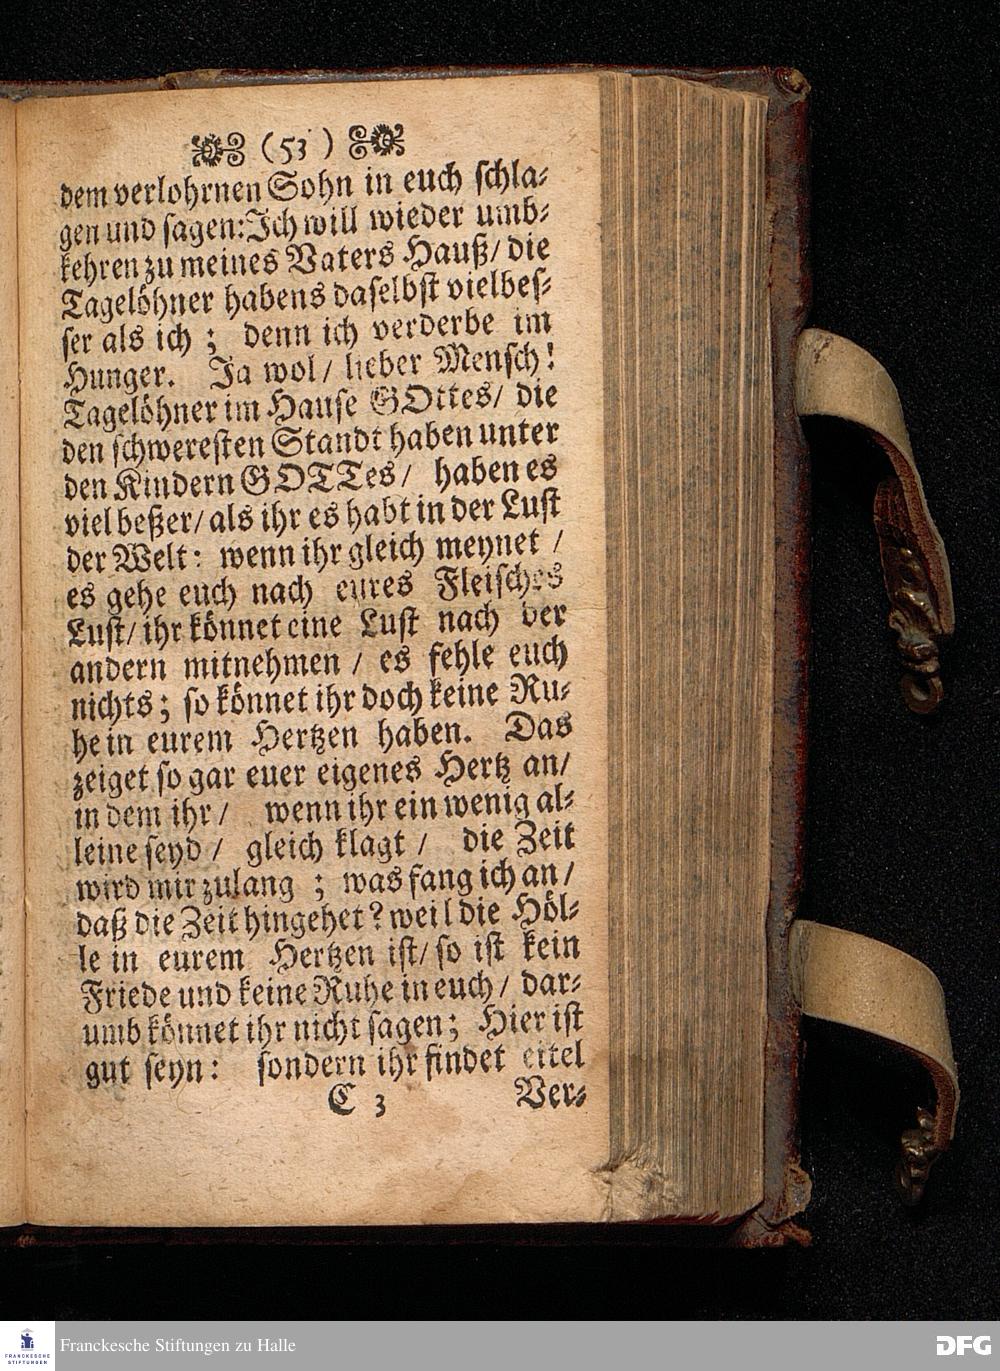 (53)
dem verlohrnen Sohn in euch schla-
gen und sagen: Ich will wieder umb-
kehren zu meines Vaters Hauß/ die
Tagelöhner habens daselbst vielbes-
ser als ich; denn ich verderbe im
Hunger. Ja wol/ lieber Mensch!
Tagelöhner im Hause GOttes/ die
den schweresten Standt haben unter
den Kindern GOTTes/ haben es
viel beßer/ als ihr es habt in der Lust
der Welt: wenn ihr gleich meynet/
es gehe euch nach eures Fleisches
Lust/ ihr könnet eine Lust nach der
andern mitnehmen/ es fehle euch
nichts; so könnet ihr doch keine Ru-
he in eurem Hertzen haben. Das
zeiget so gar euer eigenes Hertz an/
in dem ihr/ wenn ihr ein wenig al-
leine seyd/ gleich klagt/ die Zeit
wird mir zulang; was fang ich an/
daß die Zeit hingehet? weil die Höl-
le in eurem Hertzen ist/ so ist kein
Friede und keine Ruhe in euch/ dar-
umb könnet ihr nicht sagen; Hier ist
gut seyn: sondern ihr findet eitel
C 3 Ver-
FRANCKESCHE
STIFTUNGEN
Franckesche Stiftungen zu Halle
DFG